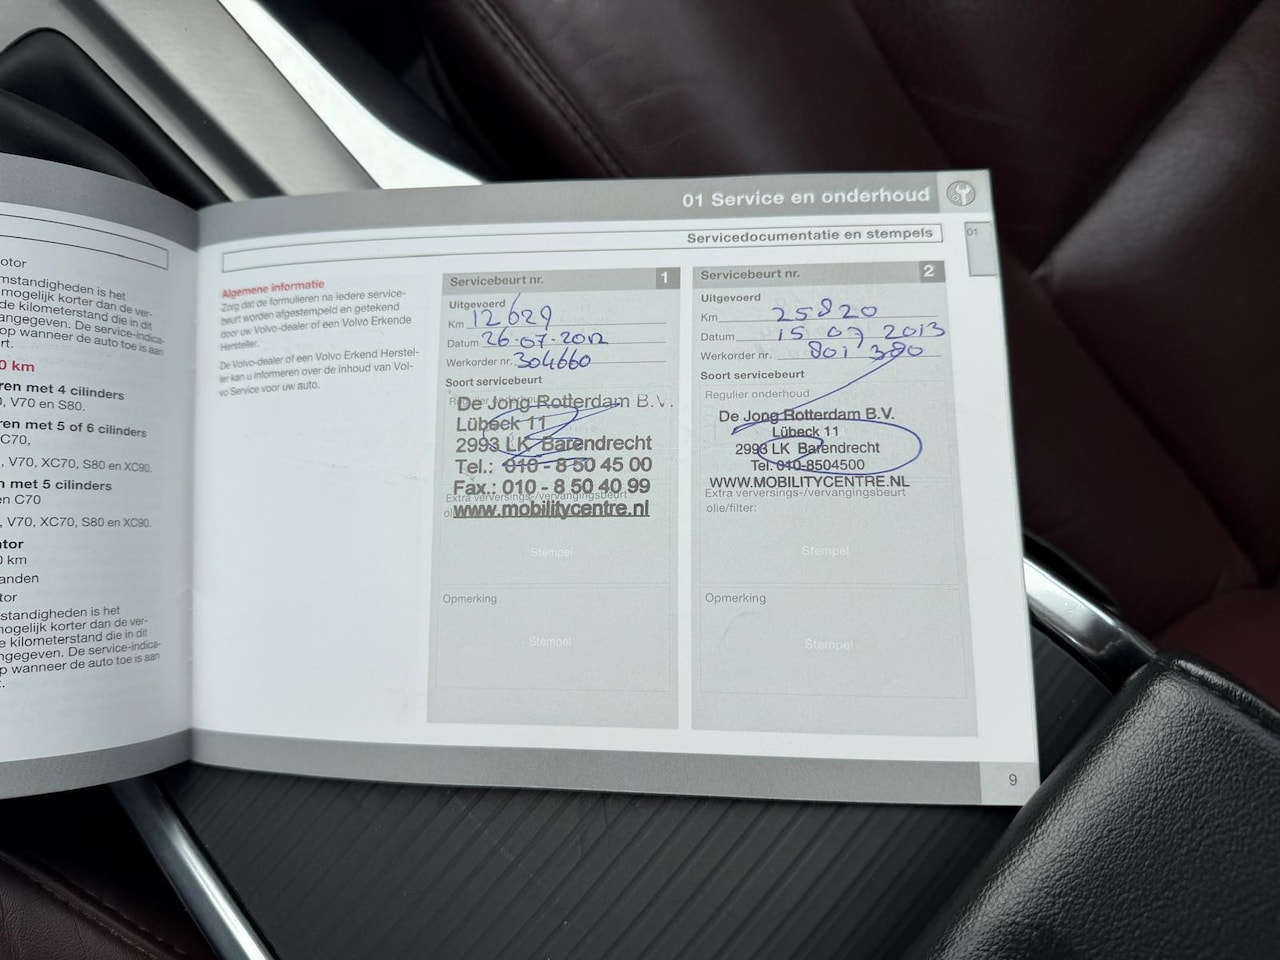 otor
mstandigheden is het
mogelijk korter dan de ver-
de kilometerstand die in dit
angegeven. De service-indica-
op wanneer de auto toe is aan
rt.
0 km
ren met 4 cilinders
, V70 en S80.
ren met 5 of 6 cilinders
C70,
, V70, XC70, S80 en XC90.
n met 5 cilinders
en C70
, V70, XC70, S80 en XC90.
tor
0 km
anden
tor
standigheden is het
mogelijk korter dan de ver-
e kilometerstand die in dit
ngegeven. De service-indica-
p wanneer de auto toe is aan
.
01 Service en onderhoud
Servicedocumentatie en stempels
01
Algemene informatie
Zorg dat de formulieren na iedere service-
beurt worden afgestempeld en getekend
door uw Volvo-dealer of een Volvo Erkende
Hersteller.
De Volvo-dealer of een Volvo Erkend Herstel-
ler kan u informeren over de inhoud van Vol-
vo Service voor uw auto.
Servicebeurt nr. 1
Uitgevoerd
Km 12629
Datum 26-07-2012
Werkorder nr. 304660
Soort servicebeurt
De Jong Rotterdam B.V.
Lübeck 11
2993 LK Barendrecht
Tel.: 010 - 8 50 45 00
Fax.: 010 - 8 50 40 99
Extra verversings-/vervangingsbeurt
www.mobilitycentre.nl
Stempel
Opmerking
Stempel
Servicebeurt nr. 2
Uitgevoerd
Km 25820
Datum 15 07 2013
Werkorder nr. 801 380
Soort servicebeurt
Regulier onderhoud
De Jong Rotterdam B.V.
Lübeck 11
2993 LK Barendrecht
Tel. 010-8504500
WWW.MOBILITYCENTRE.NL
Extra verversings-/vervangingsbeurt
olie/filter:
Stempel
Opmerking
Stempel
9